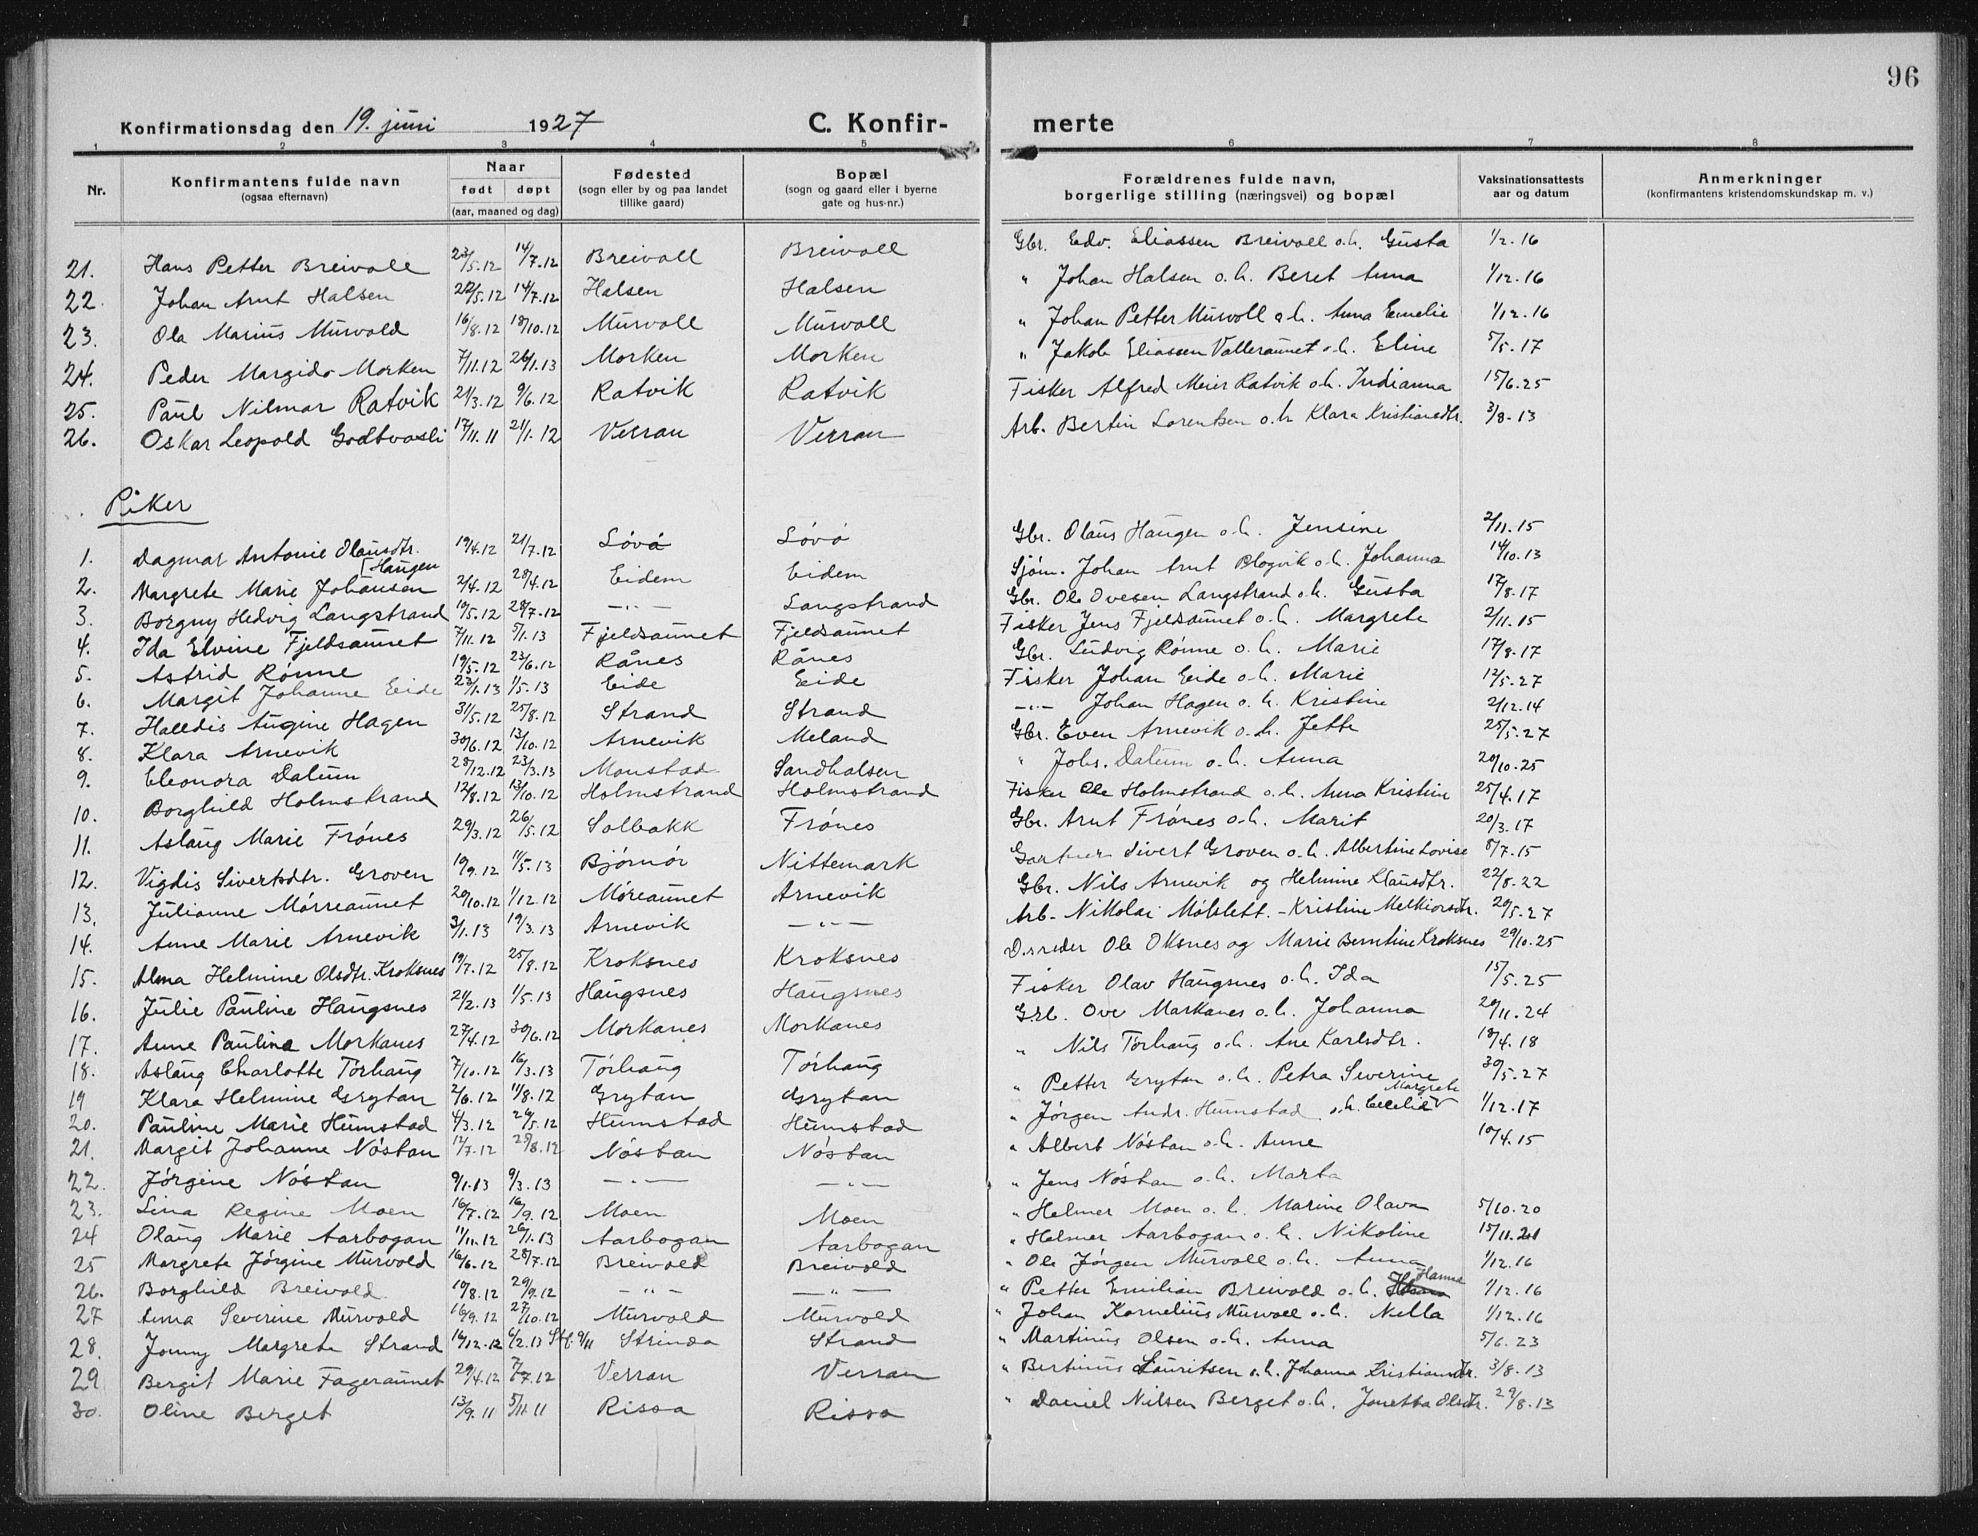 96
Konfirmationsdag den 19. juni 1927 C. Konfir- merte
1 2 3 4 5 6 7 8
Nr. Konfirmantens fulde navn (ogsaa efternavn) Naar født døpt (aar, maaned og dag) Fødested (sogn eller by og paa landet tillike gaard) Bopæl (sogn og gaard eller i byerne gate og hus-nr.) Forældrenes fulde navn, borgerlige stilling (næringsvei) og bopæl Vaksinationsattests aar og datum Anmerkninger (konfirmantens kristendomskundskap m. v.)
21. Hans Petter Breivoll 23/5.12 14/7.12 Breivoll Breivoll Gbr. Edv. Eliassen Breivoll o.h. Gusta 1/2.16
22. Johan Arnt Halsen 22/5.12 14/7.12 Halsen Halsen " Johan Halsen o.h. Beret Anna 1/12.16
23. Ola Marius Murvold 16/8.12 18/10.12 Murvoll Murvoll " Johan Petter Murvoll o.h. Anna Emelie 1/12.16
24. Peder Margido Morken 7/11.12 26/1.13 Morken Morken " Jakob Eliassen Valleraunet o.h. Eline 5/5.17
25. Paul Nilmar Ratvik 21/3.12 9/6.12 Ratvik Ratvik Fisker Alfred Meier Ratvik o.h. Indianna 15/6.25
26. Oskar Leopold Godtvasli 17/11.11 21/1.12 Verran Verran Arb. Bertin Lorentsen o.h. Klara Kristiansdtr. 3/8.13
Piker
1. Dagmar Antonie Olausdtr. 19/4.12 21/7.12 Løvø Løvø Gbr. Olaus Haugen o.h. Jensine 2/11.15
[Haugen
2. Margrete Marie Johansen 2/4.12 28/4.12 Eidem Eidem Sjøm. Johan Arnt Blogvik o.h. Johanna 14/10.13
3. Borgny Hedvig Langstrand 19/5.12 28/7.12 -"- Langstrand Gbr. Ole Ovesen Langstrand o.h. Gusta 17/8.17
4. Ida Elvine Fjeldsaunet 7/11.12 5/1.13 Fjeldsaunet Fjeldsaunet Fisker Jens Fjeldsaunet o.h. Margrete 2/11.15
5. Astrid Rønne 19/5.12 23/6.12 Rånes Rånes Gbr. Ludvig Rønne o.h. Marie 17/8.17
6. Margit Johanne Eide 23/1.13 1/5.13 Eide Eide Fisker Johan Eide o.h. Marie 12/5.27
7. Halldis Augine Hagen 31/5.12 25/8.12 Strand Strand -"- Johan Hagen o.h. Kristine 2/12.14
8. Klara Arnevik 30/6.12 13/10.12 Arnevik Meland Gbr. Even Arnevik o.h. Jette 25/5.27
9. Eleonora Dalum 28/12.12 23/3.13 Monstad Sandhalsen " Johs. Dalum o.h. Anna 20/10.25
10. Borghild Holmstrand 12/8.12 13/10.12 Holmstrand Holmstrand Fisker Ole Holmstrand o.h. Anna Kristine 25/4.17
11. Aslaug Marie Frönes 29/3.12 26/5.12 Solbakk Frönes Gbr. Arnt Frönes o.h. Marit 20/3.17
12. Vigdis Sivertsdtr. Groven 19/9.12 11/5.13 Bjørnør Nittemark Gartner Sivert Groven o.h. Albertine Lovise 8/7.15
13. Julianne Mörreaunet 20/10.12 1/12.12 Möreaunet Arnevik Gbr. Nils Arnevik og Helmine Klausdtr. 22/8.22
14. Anne Marie Arnevik 3/1.13 19/3.13 Arnevik -"- Arb. Nikolai Mölslett. - Kristine Melkiorsdtr. 20/5.27
15. Alma Helmine Olsdtr. Kroksnes 19/7.12 25/8.12 Kroksnes Kroksnes Ole Oksnes og Marie Berntine Kroksnes 29/10.25
16. Julie Pauline Haugsnes 21/2.13 1/5.13 Haugsnes Haugsnes Fisker Olav Haugsnes o.h. Ida 15/5.25
17. Anne Paulina Morkanes 27/4.12 30/6.12 Morkanes Morkanes Grb. Ove Markanes o.h. Johanna 20/11.24
18. Aslaug Charlotte Törhaug 7/10.12 16/3.13 Törhaug Törhaug " Nils Törhaug o.h. Ane Karlsdtr. 18/4.18
19 Klara Helmine Grytan 2/6.12 11/8.12 Grytan Grytan " Petter Grytan o.h. Petra Severine 30/5.27
20. Pauline Marie Humstad 4/3.12 26/5.12 Humstad Humstad " Jörgen Andr. Humstad o.h. Cecilie Margrete 1/12.17
21. Margit Johanne Nöstan 12/7.12 25/8.12 Nöstan Nöstan " Albert Nöstan o.h. Anne 10/4.15
22. Jörgine Nöstan 9/1.13 9/3.13 -"- -"- " Jens Nöstan o.h. Marta
23. Lina Regine Moen 16/7.12 16/9.12 Moen Moen " Helmer Moen o.h. Marine Olava 5/10.20
24 Olaug Marie Aarbogan 11/11.12 26/1.13 Aarbogan Aarbogan " Helmer Aarbogan o.h. Nikoline 15/11.21
25 Margrete Jörgine Murvold 16/6.12 28/7.12 Breivold Breivold " Ole Jörgen Murvoll o.h. Anna 1/12.16
26. Borghild Breivold 10/8.12 29/9.12 -"- -"- " Petter Emilian Breivold o.h. Hanna 1/12.16
27 Anna Severine Murvold 16/9.12 27/10.12 Murvold Murvold " Johan Kornelius Murvoll o.h. Nella 1/12.16
28. Jonny Margrete Strand 16/12.12 6/2.13 Stf. 9/11 Strinda Strand " Martinus Olsen o.h. Anna 5/6.23
29. Bergit Marie Fageraunet 29/4.12 7/7.12 Verran Verran " Bertinus Lauritsen o.h. Johanna Kristiansdtr. 3/8.13
30. Oline Berget 13/9.11 5/11.11 Rissa Rissa " Daniel Nilsen Berget o.h. Jonetta Olsdtr. 29/8.13